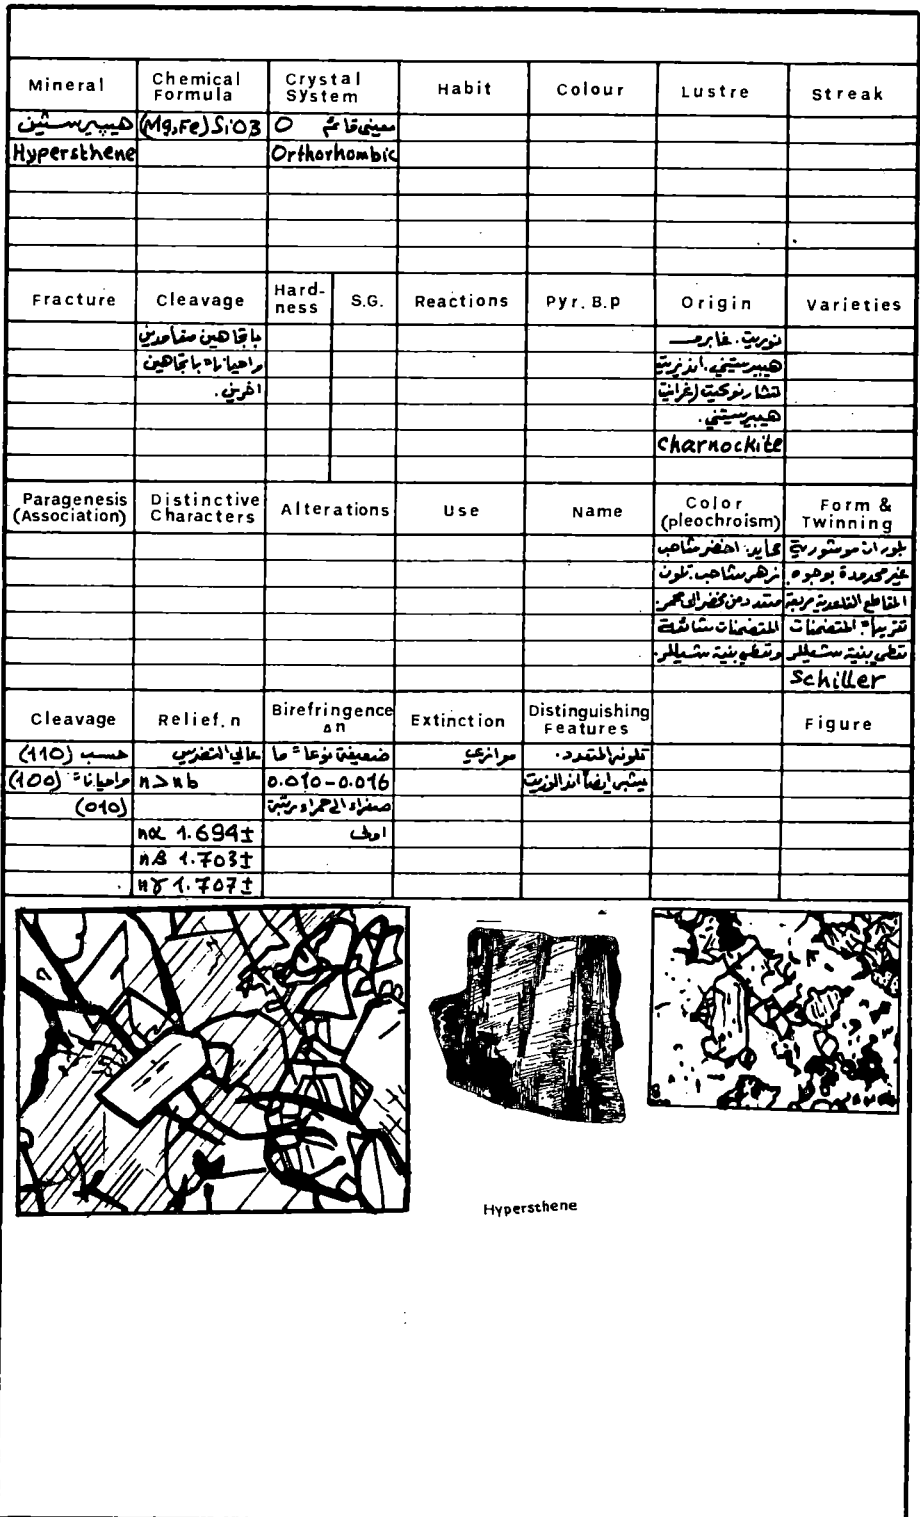 Mineral
Chemical Formula
Crystal System
Habit
Colour
Lustre
Streak
هيبرستين
(Mg,Fe)SiO3
O معيني قائم
Hypersthene
Orthorhombic
Fracture
Cleavage
Hard-ness
S.G.
Reactions
Pyr. B.p
Origin
Varieties
باتجاهين متعامدين
نوريت. غابرو
واحياناً باتجاهين
هيبرستيني. اندزيت
اخرين.
تشارنوكيت (غرانيت
هيبرستيني.
Charnockite
Paragenesis (Association)
Distinctive Characters
Alterations
Use
Name
Color (pleochroism)
Form & Twinning
اخضر شاحب
بلورات موشورية
زهر شاحب. تلون
غير محدودة بوجوه.
متعدد من مخضر الى محمر.
المقاطع القاعدية مربعة
المتضمنات شائعة
تقريباً. المتضمنات
وتعطي بنية شيللر.
تعطي بنية شيللر
Schiller
Cleavage
Relief. n
Birefringence Δn
Extinction
Distinguishing Features
Figure
حسب (110)
عالي التضرس
ضعيفة نوعاً ما
موازي
تلونه المتعدد.
واحياناً (100)
n>nb
0.010-0.016
يشبه ايضاً
(010)
صفراء الى حمراء رتبة
nα 1.694±
اولى
nβ 1.703±
nγ 1.707±
Hypersthene